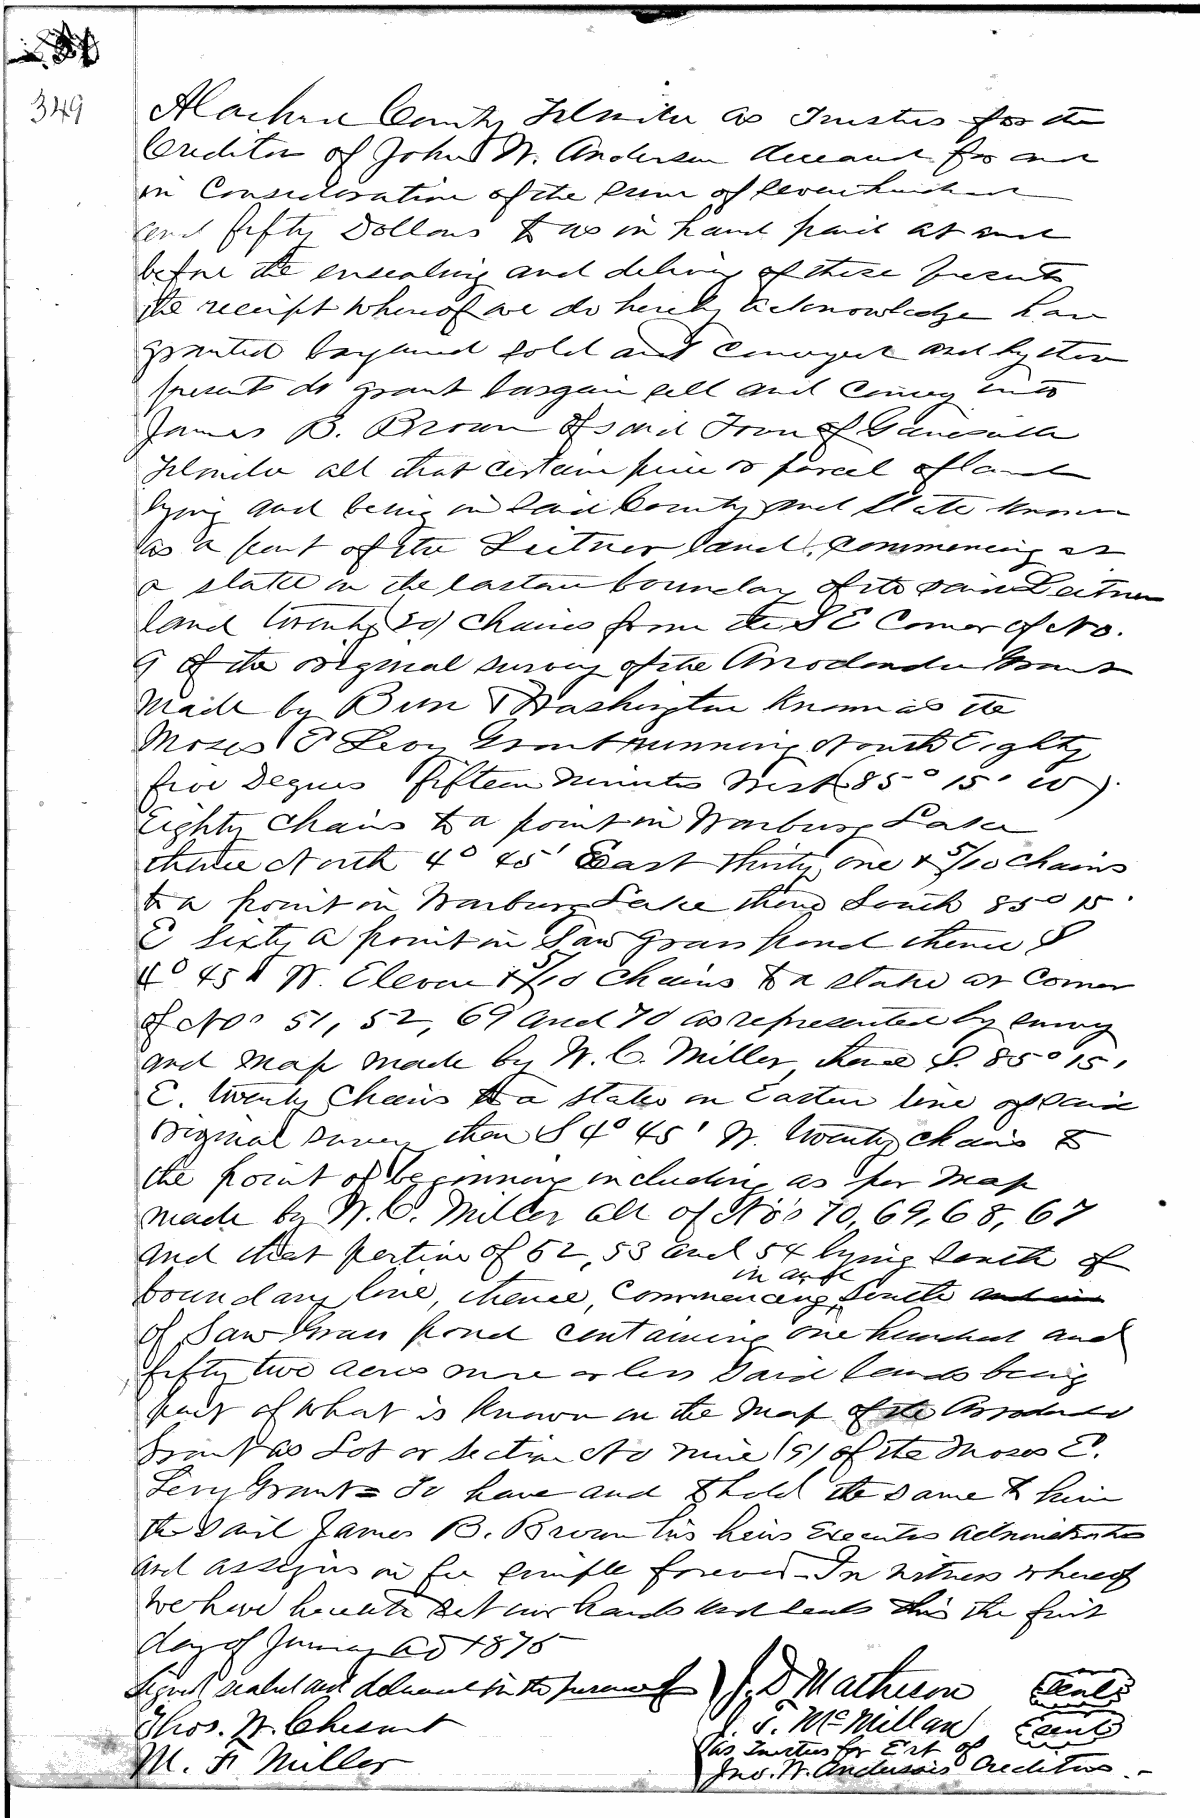 349
Alachua County Florida as Trustees for the
Creditors of John W. Anderson deceased for and
in Consideration of the sum of seven hundred
and fifty Dollars to us in hand paid at and
before the ensealing and delivery of these presents
the receipt whereof we do hereby acknowledge have
granted bargained sold and conveyed and by these
presents do grant bargain sell and convey unto
James B. Brown of said Town of Gainesville
Florida all that certain piece or parcel of land
lying and being in said County and State known
as a part of the Leitner land, commencing at
a stake on the Eastern boundary of the said Leitner
land twenty (20) chains from the S E Corner of No.
9 of the original survey of the Arredondo Grant
made by Burr & Washington known as the
Moses E Levy Grant running North Eighty
five Degrees fifteen minutes West (85° 15' W).
Eighty chains to a point in Warburg Lake
thence North 4° 45' East thirty one & 5/10 chains
to a point in Warburg Lake thence South 85° 15'
E sixty a point in Saw grass pond thence S
4° 45' W. Eleven & 5/10 chains to a stake at corner
of Nos 51, 52, 69 and 70 as represented by survey
and map made by W. C. Miller, thence S. 85° 15'
E. twenty chains to a stake on Eastern line of said
original survey then S 4° 45' W. twenty chains to
the point of beginning including as per map
made by W. C. Miller all of No's 70, 69, 68, 67
and that portion of 52, 53 and 54 lying South of
in and
boundary line, thence, commencing South and in
of Saw Grass pond containing one hundred and
fifty two acres more or less said lands being
part of what is known on the map of the Arredondo
Grant as Lot or section No nine (9) of the Moses E.
Levy Grant = To have and to hold the same to him
the said James B. Brown his heirs Executors administrators
and assigns in fee simple forever - In witness whereof
we have hereunto set our hands and seals this the first
day of January AD 1875
Signed sealed and delivered in the presence of J. D Matheson Seal
Thos. W. Chesnut J. F. McMillan Seal
M. F Miller as Trustees for Est of
Jno. W. Anderson's Creditors.